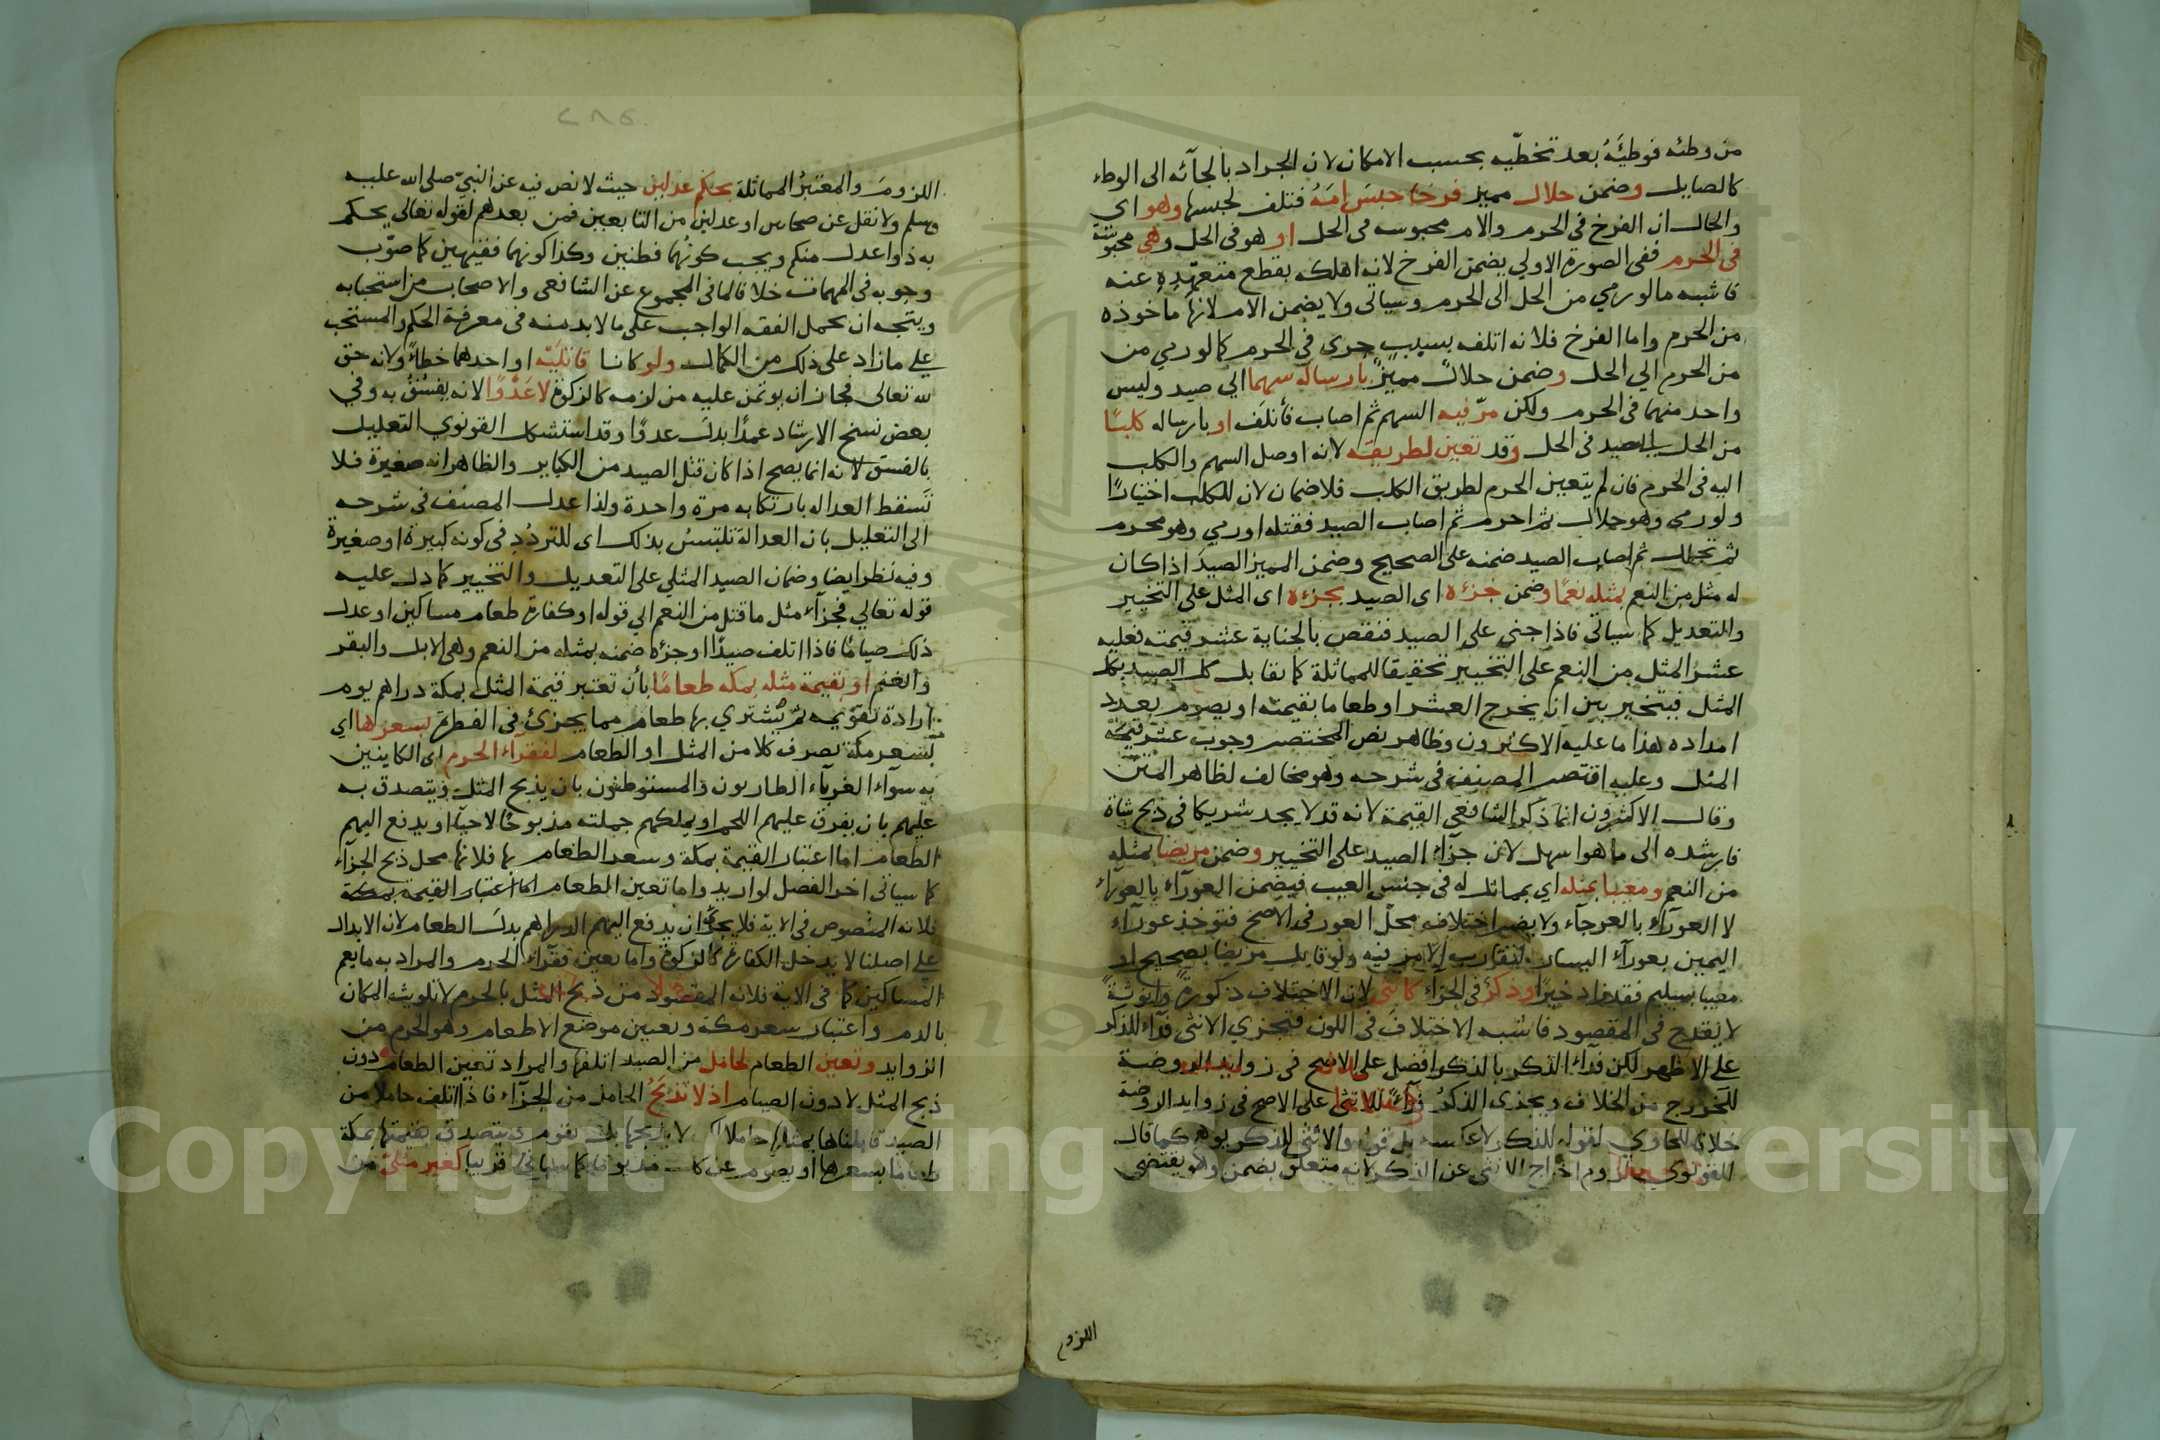 من وطئه فوطيَهُ بعد تخطّيه بحسب الامكان لان الجراد بالجآئه الى الوطء
كالصايل وضمن حلال مميز فرخا حبسَ امَهُ فتلف لحبسها وهو اي
والحال ان الفرخ في الحرم والام محبوسه في الحل او هو في الحل وهي محبوسة
في الحرم ففي الصورة الاولي يضمن الفرخ لانه اهلكه بقطع متعهّدِهِ عنه
فاشبه مالو رمي من الحل الى الحرم وسياتي ولا يضمن الام لانها ماخوذه
من الحرم واما الفرخ فلانه اتلفه بسببٍ جرى في الحرم كما لو رمي من
من الحرم الي الحل وضمن حلالٌ مميزٌ بارساله سهما الي صيد وليس
واحد منهما في الحرم ولكن مرّ فيه السهم ثم اصاب فأتلَف او بارساله كلبًا
من الحل لصيد في الحل وقد تعين لطريقه لانه اوصل السهم والكلب
اليه في الحرم فان لم يتعين الحرم لطريق الكلب فلا ضمان لان للكلب اختيارًا
ولو رمي وهو حلال ثم احرم ثم اصاب الصيد فقتله او رمي وهو محرم
ثم تحلل ثم اصاب الصيد ضمنه على الصحيح وضمن المميز الصيدَ اذا كان
له مثل من النعم بمثله نعمًا وضمن جزءه اى الصيد بجزءه اى المثل على التخيير
والتعديل كما سياتي فاذا جني على الصيد فنقص بالجناية عشر قيمته فعليه
عشرُ المثل من النعم على التخيير تحقيقا للمماثلة كما نقابل كل الصيد بكل
المثل فيتخير بين ان يخرج العشر او طعاما بقيمته او يصوم بعدد
امداده هذا ما عليه الاكثرون وظاهر نص المختصر وجوب عشر قيمة
المثل وعليه اقتصر المصنف في شرحه وهو مخالف لظاهر المتن
وقال الاكثرون انما ذكر الشافعي القيمة لانه قد لا يجد شريكا في ذبح شاة
فارشده الى ما هو اسهل لان جزاء الصيد على التخيير وضمن مريضا بمثله
من النعم ومعيبا بمثله اي بمماثل له في جنس العيب فيضمن العورآء بالعورآء
لا العورآء بالعرجآء ولا يضر اختلاف محل العور في الاصح فتوخذ عورآء
اليمين بعورآء اليسار لتقارب الامر فيه ولو قابل مريضا بصحيح او
معيبا بسليم فقد زاد خيرًا وذكرٌ في الجزاء كانثي لان الاختلاف ذكورةً وانوثةً
لا يقدح في المقصود فاشبه الاختلافَ في اللون فتجزي الانثي فدآء للذكر
على الاظهر لكن فدآء الذكر بالذكر افضل على الاصح في زوايد الروضة
للخروج من الخلاف ويجزى الذكرُ فدآءً للانثي على الاصح في زوايد الروضة
خلافا للحاوي لقوله للذكر لا عكسه بل قوله والانثي للذكر يوهم كما قال
القونوي لزوم اخراج الانثي عن الذكر لانه متعلق بضمن وهو يقتضى
اللزوم
اللزومَ والمعتبرُ المماثلةَ بحكم عدلين حيث لا نص فيه عن النبيّ صلى الله عليه
وسلم ولا نقل عن صحابي او عدلين من التابعين فمن بعدهم لقوله تعالى يحكم
به ذوا عدل منكم ويجب كونُهما فطنين وكذا كونهما فقيهين كما صوّب
وجوبه في المهمات خلافا لما في المجموع عن الشافعي والاصحاب من استحبابه
ويتجه ان يحمل الفقه الواجب على مالا بد منه في معرفة الحكم والمستحب
على ما زاد على ذلك من الكمال ولو كانا قاتلَيْه او احدهما خطاءً ولانه حق
لله تعالى فجاز ان يوتمن عليه من لزمه كالزكوة لا عَدْوًا لانه يفسُقُ به وفي
بعض نسخ الارشاد عمدًا بدلَ عدوًا وقد استشكل القونوي التعليل
بالفسق لانه انما يصح اذا كان قتل الصيد من الكباير والظاهر انه صغيرة فلا
تَسقط العدالة بارتكابه مرة واحدة ولذا عدل المصنف في شرحه
الى التعليل بان العدالة تلتبسُ بذلك اى للتردُدِ في كونه كبيرة او صغيرة
وفيه نظر ايضا وضمان الصيد المثلي على التعديل والتخيير كما دل عليه
قوله تعالي فجزآء مثل ما قتل من النعم الي قوله او كفارة طعام مساكين او عدل
ذلك صيامًا فاذا اتلف صيدًا او جزءه ضمنه بمثله من النعم وهي الابل والبقر
والغنم او بقيمة مثله بمكه طعامًا بأن تعتبر قيمة المثل بمكة دراهم يوم
ارادة تقويمه ثم يُشتري بها طعام مما يجزئ في الفطرة بسعرها اي
بسعر مكة يصرف كلا من المثل او الطعام لفقرآء الحرم اى الكاينين
به سوآء الغربآء الطاريون والمستوطنون بان يذبح المثل ويتصدق به
عليهم بان يفرق عليهم اللحم او يملكهم جملته مذبوحًا لا حيًا او يدفع اليهم
الطعام اما اعتبار القيمة بمكة وسعر الطعام بها فلانها محل ذبح الجزآء
كما سياتى اخر الفصل لو اريد واما تعين الطعام اما اعتبار القيمة بمكة
فلانه المنصوص في الاية فلا يجزئ ان يدفع اليهم الدراهم بدل الطعام لان الابدال
على اصلنا لا يدخل الكفارة كالزكوة واما تعين فقرآء الحرم والمراد به ما يعم
المساكين كما في الاية فلانه المقصود من ذبح المثل بالحرم لا تلويث المكان
بالدم واعتبار سعر مكة وتعيين موضع الاطعام وهو الحرم من
الزوايد وتعين الطعام لحامل من الصيد اتلفها والمراد تعين الطعام دون
ذبح المثل لا دون الصيام اذ لا تذبَحُ الحامل من الجزآء فاذا اتلف حاملا من
الصيد قابلناها بمثلها حاملا لا يذبحها بل يقوم ويتصدق بقيمتها بمكة
طعاما بسعرها او يصوم عن كل مد يوما كما سياتي قريبا كغير مثليّ من